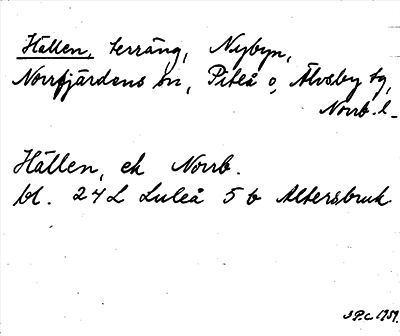 Hällen, terräng, Nybyn,
Norrfjärdens sn, Piteå o. Älvsby tg,
Norrb. l.
Hällen, ek Norrb.
bl. 24L Luleå 5b Altersbruk